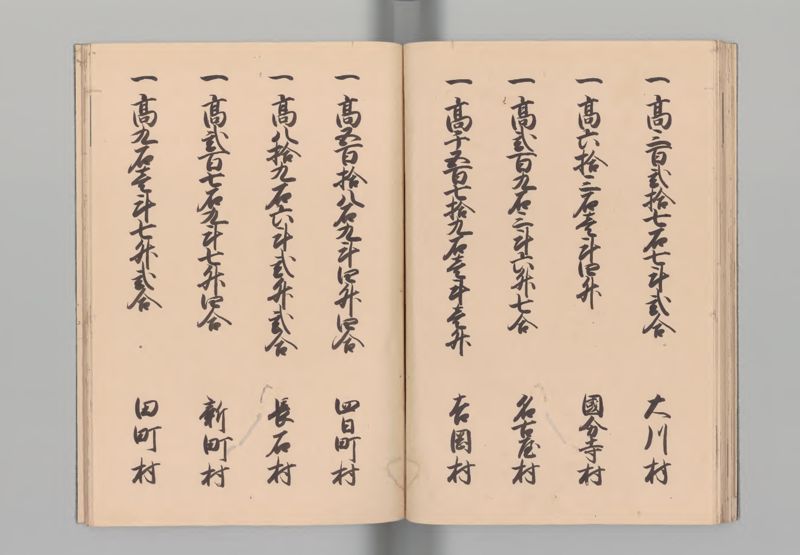 一 高三百弐拾七石七斗弐合 大川村
一 高六拾三石壱斗四升 國分寺村
一 高弐百九石三斗六升七合 名古屋村
一 高千五百七拾九石壱斗壱升 吉岡村
一 高五百拾八石九斗四升四合 四日町村
一 高八拾九石六斗弐升弐合 長石村
一 高弐百七石九斗七升四合 新町村
一 高九石壱斗七升弐合 田町村